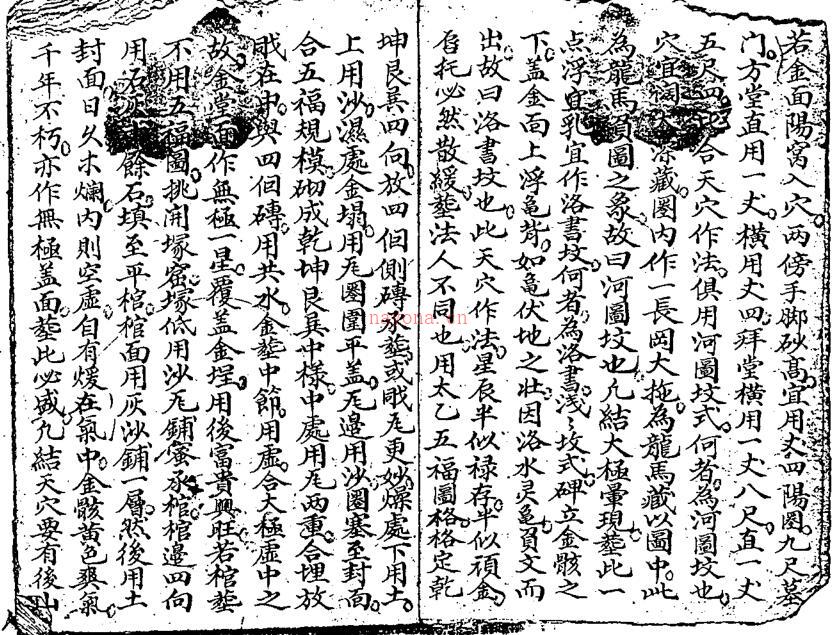 若金面陽窩入穴兩傍手脚砂髙宜用丈四陽圈九尺墓
門方堂直用一丈橫用丈四拜堂橫用一丈八尺直一丈
五尺四合天穴作法俱用河圖坟式何者為河圖坟也
穴宜深藏圈内作一長岡大拖為龍馬藏以圖中此
為龍馬負圖之象故曰河圖坟也凢結大極暈現塟此一
点浮宜乳宜作洛書坟何者為洛書浅〻坟式碑立金骸之
下蓋金面上浮龜背如龜伏地之壮因洛水灵龜負文而
出故曰洛書坟也此天穴作法星辰半似禄存半似頑金
唇托必然散緩塟法人不同也用太乙五福圖格格定乾
坤艮巽四向放四個側磚塟或戙瓦更妙燥處下用土
上用沙濕處金塌用瓦圈圍平盖瓦邉用沙圈塞至封面
合五福規模砌成乾坤艮巽中様中處用瓦兩重合埋放
戙在中與四個磚用共水金塟中節用虚合大極虚中之
故金堂面作無極一星覆盖金埕用後富貴興旺若棺塟
不用五福圖挑開塚窑塚低用沙瓦鋪蜜承棺棺邉四向
用石灰餘石填至平棺棺面用灰沙鋪一層然後用土
封面日久木爛内則空虚自有煖在氣中金骸黃色爽氣
千年不朽亦作無極盖面塟此必盛凢結天穴要有後山
nayona.vn